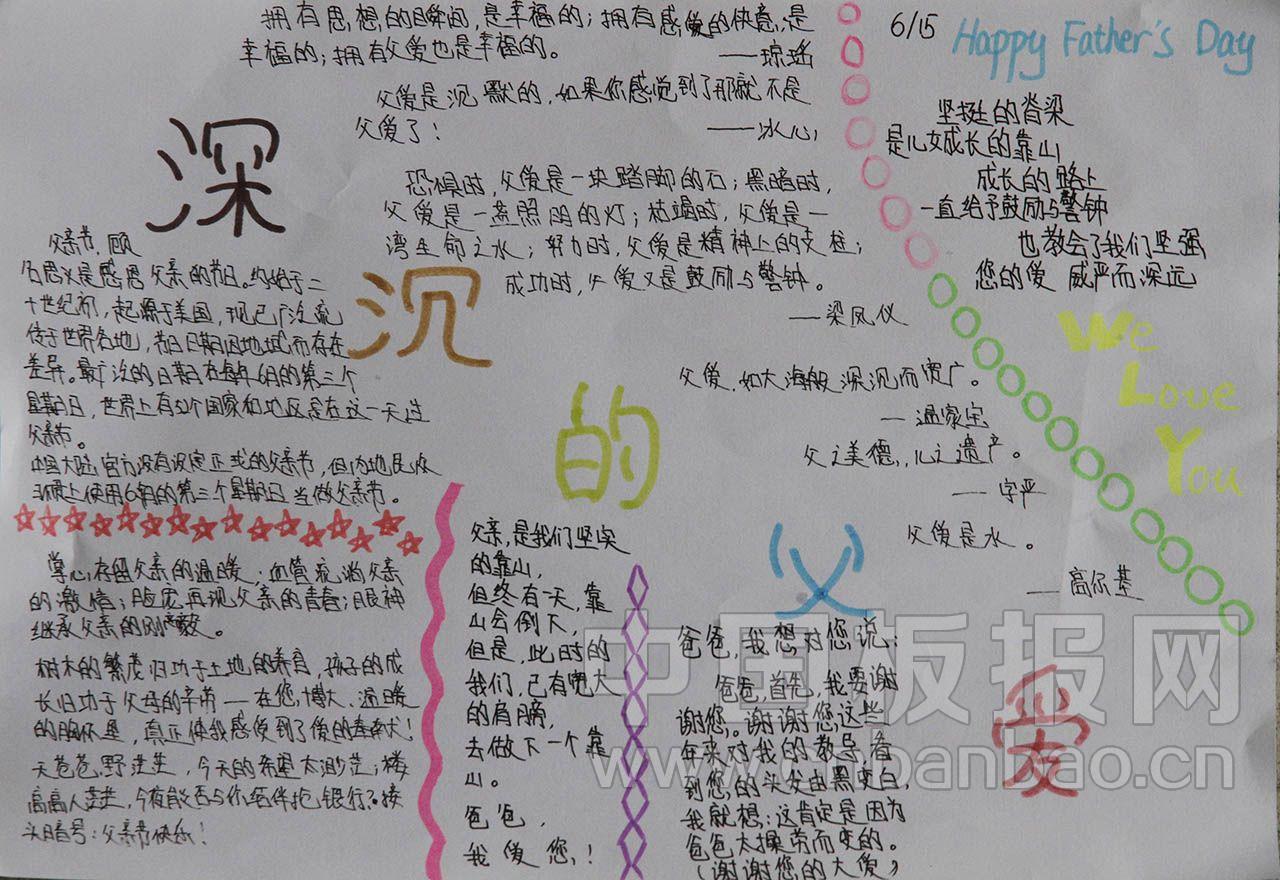 拥有思想的瞬间,是幸福的;拥有感受的快意,是
幸福的;拥有父爱也是幸福的。
——琼瑶
父爱是沉默的,如果你感觉到了那就不是
父爱了!
——冰心
恐惧时,父爱是一块踏脚的石;黑暗时,
父爱是一盏照明的灯;枯竭时,父爱是一
湾生命之水;努力时,父爱是精神上的支柱;
成功时,父爱又是鼓励与警钟。
——梁凤仪
父爱,如大海般深沉而宽广。
—温家宝
父之美德,儿之遗产。
—字严
父爱是水。
—高尔基
6/15 Happy Father's Day
坚挺的脊梁
是儿女成长的靠山
成长的路上
一直给予鼓励与警钟
也教会了我们坚强
您的爱 威严而深远
We
Love
You
深
沉
的
父
爱
父亲节,顾
名思义是感恩父亲的节日。约始于二
十世纪初,起源于美国,现已广泛流
传于世界各地,节日日期因地域而存在
差异。最广泛的日期在每年6月的第三个
星期日,世界上有52个国家和地区是在这一天过
父亲节。
中国大陆官方没有设定正式的父亲节,但内地民众
习惯上使用6月的第三个星期日当做父亲节。
掌心存留父亲的温暖;血管流淌父亲
的激情;脸庞再现父亲的青春;眼神
继承父亲的刚毅。
树木的繁茂归功于土地的养育,孩子的成
长归功于父母的辛劳—在您,博大、温暖
的胸怀里,真正使我感受到了爱的奉献!
天苍苍,野茫茫,今天的希望太渺茫;楼
高高人茫茫,今夜能否与你结伴抢银行?接
头暗号:父亲节快乐!
父亲,是我们坚实
的靠山,
但终有一天,靠
山会倒下,
但是,此时的
我们,已有宽大
的肩膀,
去做下一个靠
山。
爸爸,
我爱您,!
爸爸,我想对您说:
爸爸,首先,我要谢
谢您。谢谢您这些
年来对我的教导,看
到您的头发由黑变白,
我就想:这肯定是因为
爸爸太操劳而变的。
(谢谢您的大爱)
中国板报网